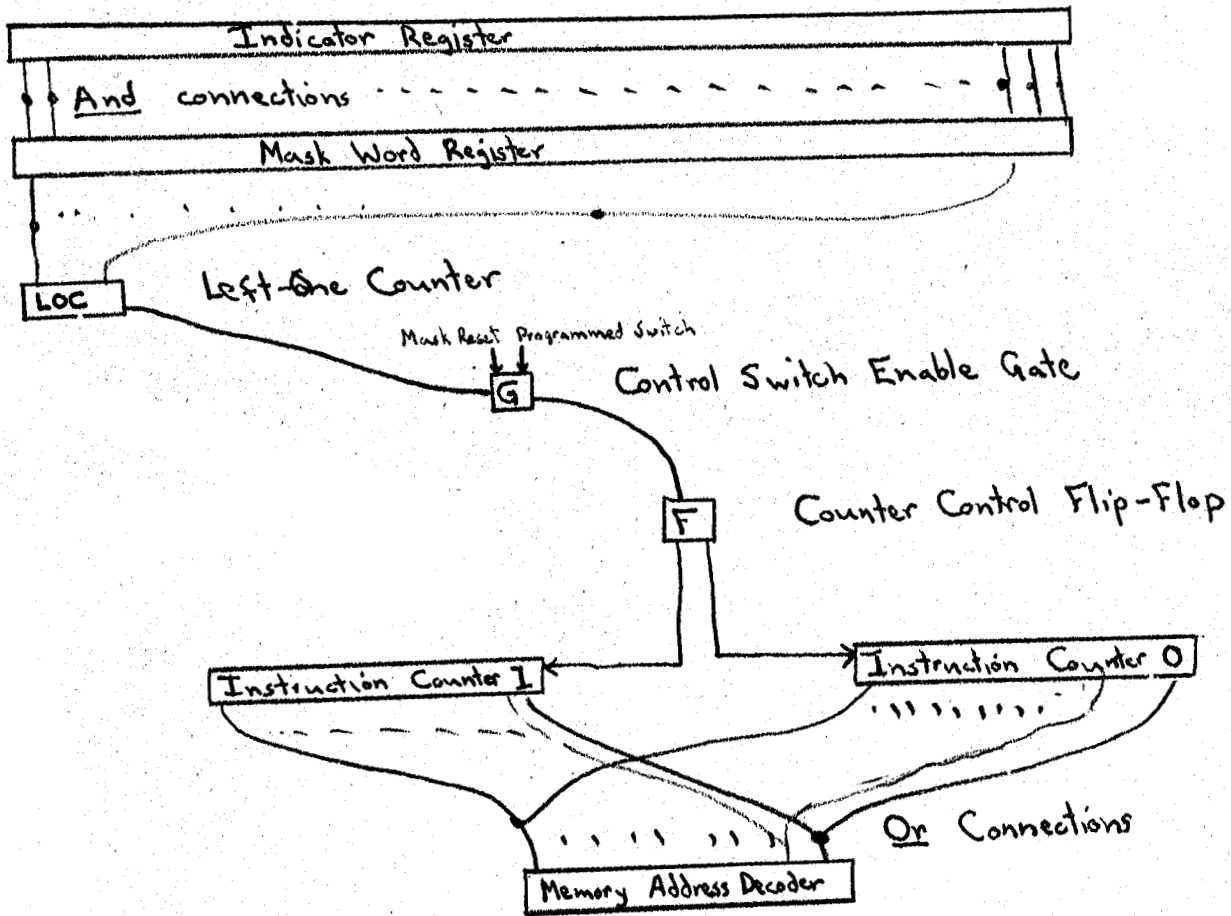 Indicator Register
And connections
Mask Word Register
LOC
Left-One Counter
Mask Reset Programmed Switch
G
Control Switch Enable Gate
F
Counter Control Flip-Flop
Instruction Counter 1
Instruction Counter 0
Or Connections
Memory Address Decoder